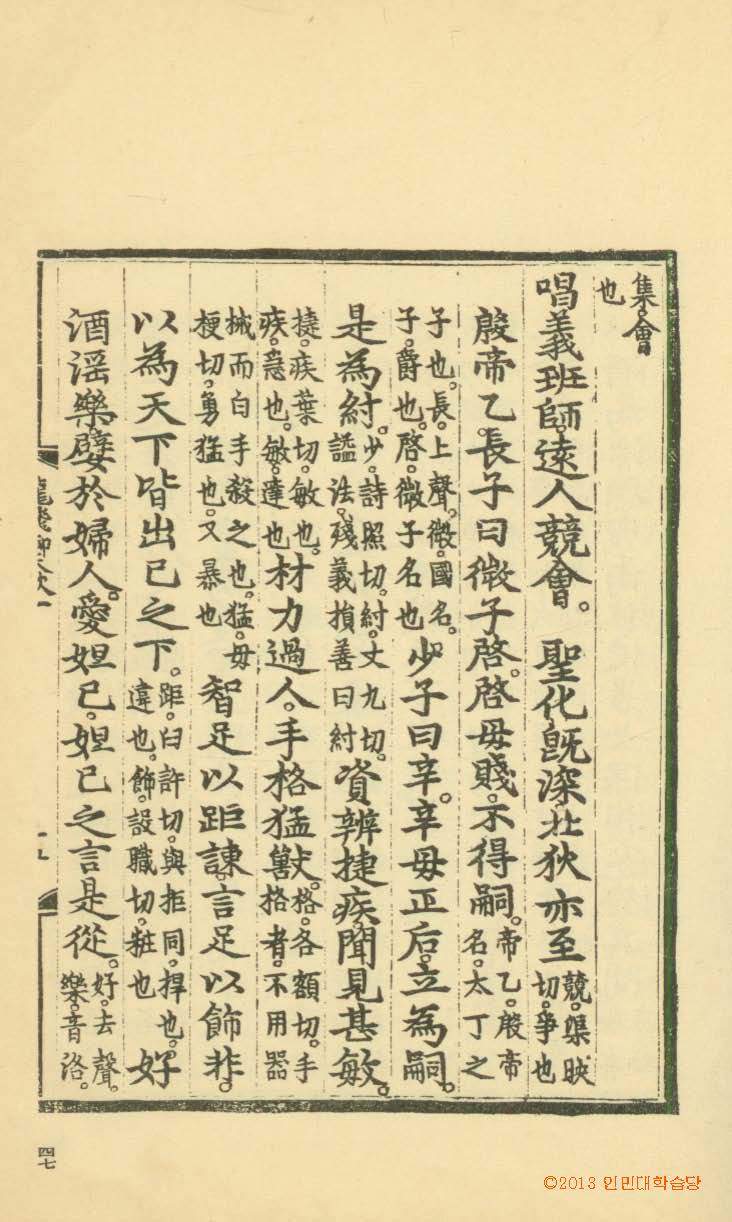 集。會
也
唱義班師。遠人競會。 聖化旣深北狄亦至
競。渠映
切。爭也
殷帝乙。長子曰微子啓。啓母賤。不得嗣。
帝乙。殷帝
名。太丁之
子也。長。上聲。微。國名。
子。爵也。啓。微子名也
少子曰辛。辛母正后。立為嗣。
是為紂。
少。詩照切。紂。丈九切。
謚法。殘義損善曰紂
資辨捷疾。聞見甚敏。
㨗。疾葉切。敏也。
疾。急也。敏。達也
材力過人。手格猛獸。
格。各額切。手
挌者。不用器
械而白手殺之也。猛。毋
梗切。勇猛也。又暴也
智足以距諫。言足以飾非。
以為天下皆出己之下。
距。臼許切。與拒同。捍也。
違也。飾。設職切。粧也
好
酒淫樂。嬖於婦人。愛妲己。妲己之言是從。
好。去聲。
樂。音洛。
四七
©2013 인민대학습당